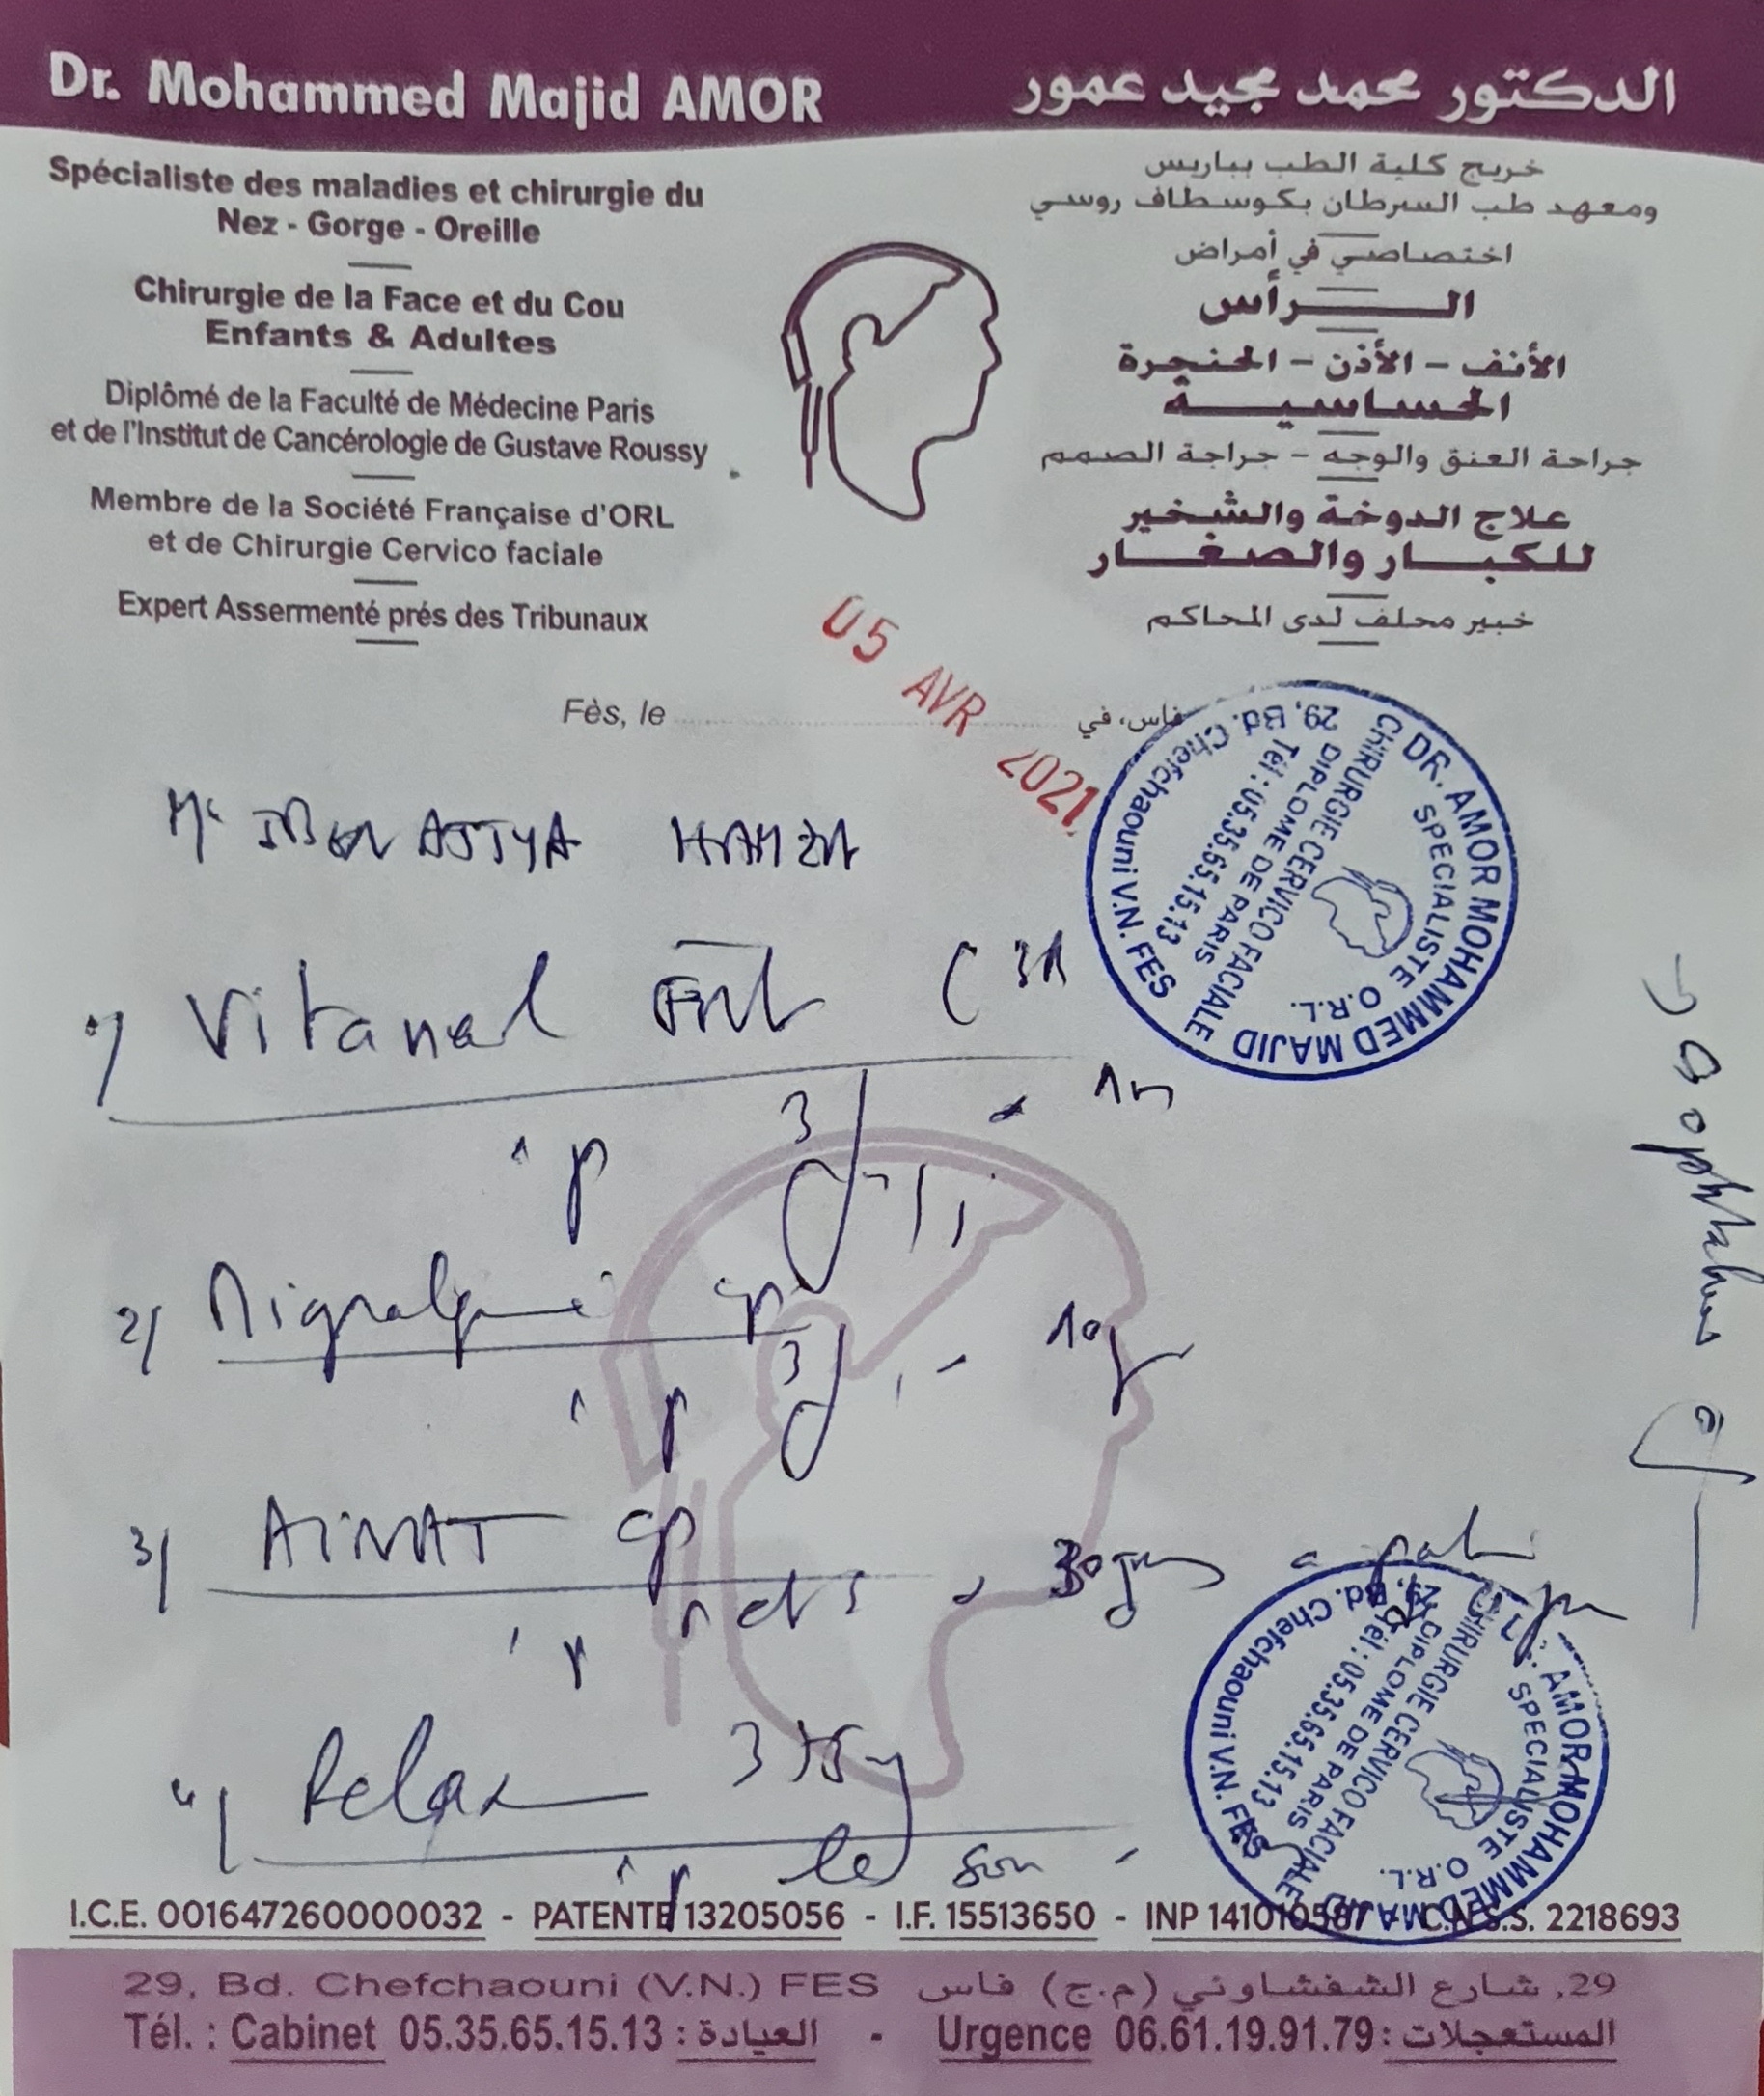 Dr. Mohammed Majid AMOR
الدكتور محمد مجيد عمور
Spécialiste des maladies et chirurgie du
Nez - Gorge - Oreille
Chirurgie de la Face et du Cou
Enfants & Adultes
Diplômé de la Faculté de Médecine Paris
et de l'Institut de Cancérologie de Gustave Roussy
Membre de la Société Française d'ORL
et de Chirurgie Cervico faciale
Expert Assermenté prés des Tribunaux
خريج كلية الطب بباريس
ومعهد طب السرطان بكوسطاف روسي
اختصاصي في أمراض
الـــرأس
الأنف - الأذن - الحنجرة
الحساسيـــة
جراحة العنق والوجه - جراجة الصمم
علاج الدوخة والشخير
للكبـــار والصغـــار
خبير محلف لدى المحاكم
Fès, le
05 AVR 2021
فاس، في
DR. AMOR MOHAMMED MAJID
SPECIALISTE O.R.L.
CHIRURGIE CERVICO FACIALE
DIPLOME DE PARIS
Tél : 05.35.65.15.13
29, Bd. Chefchaouni V.N. FES
HAMZA
Vitanal
3/
2/
cp
3/
3/ AINAT cp
Relax
le soir
AMOR MOHAMMED MAJID
SPECIALISTE O.R.L.
CHIRURGIE CERVICO FACIALE
DIPLOME DE PARIS
Tél : 05.35.65.15.13
Bd. Chefchaouni V.N. FES
I.C.E. 001647260000032 - PATENTE 13205056 - I.F. 15513650 - INP 141010587 - C.N.S.S. 2218693
29, Bd. Chefchaouni (V.N.) FES 29, شارع الشفشاوني (م.ج) فاس
Tél. : Cabinet 05.35.65.15.13 : العيادة - Urgence 06.61.19.91.79 : المستعجلات